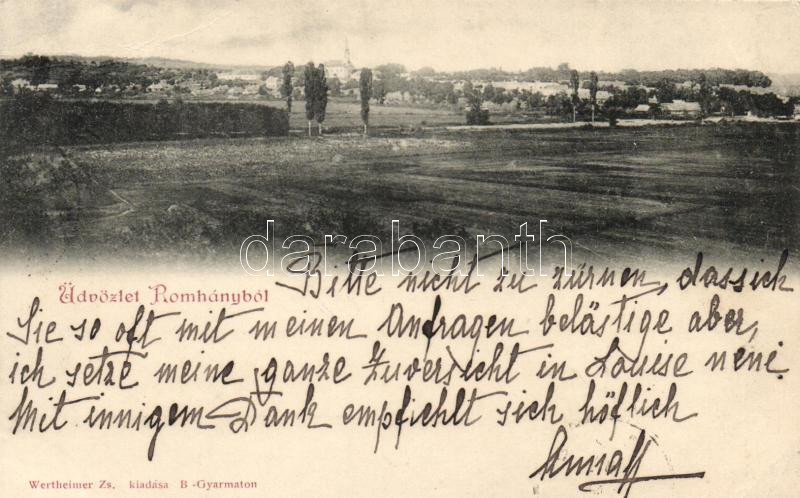 darabanth.com
Üdvözlet Romhányból
Bitte nicht zu zürnen, dass ich
Sie so oft mit meinen Anfragen belästige aber,
ich setze meine ganze Zuversicht in Louise néni
Mit innigem Dank empfiehlt sich höflich
Wertheimer Zs. kiadása B-Gyarmaton